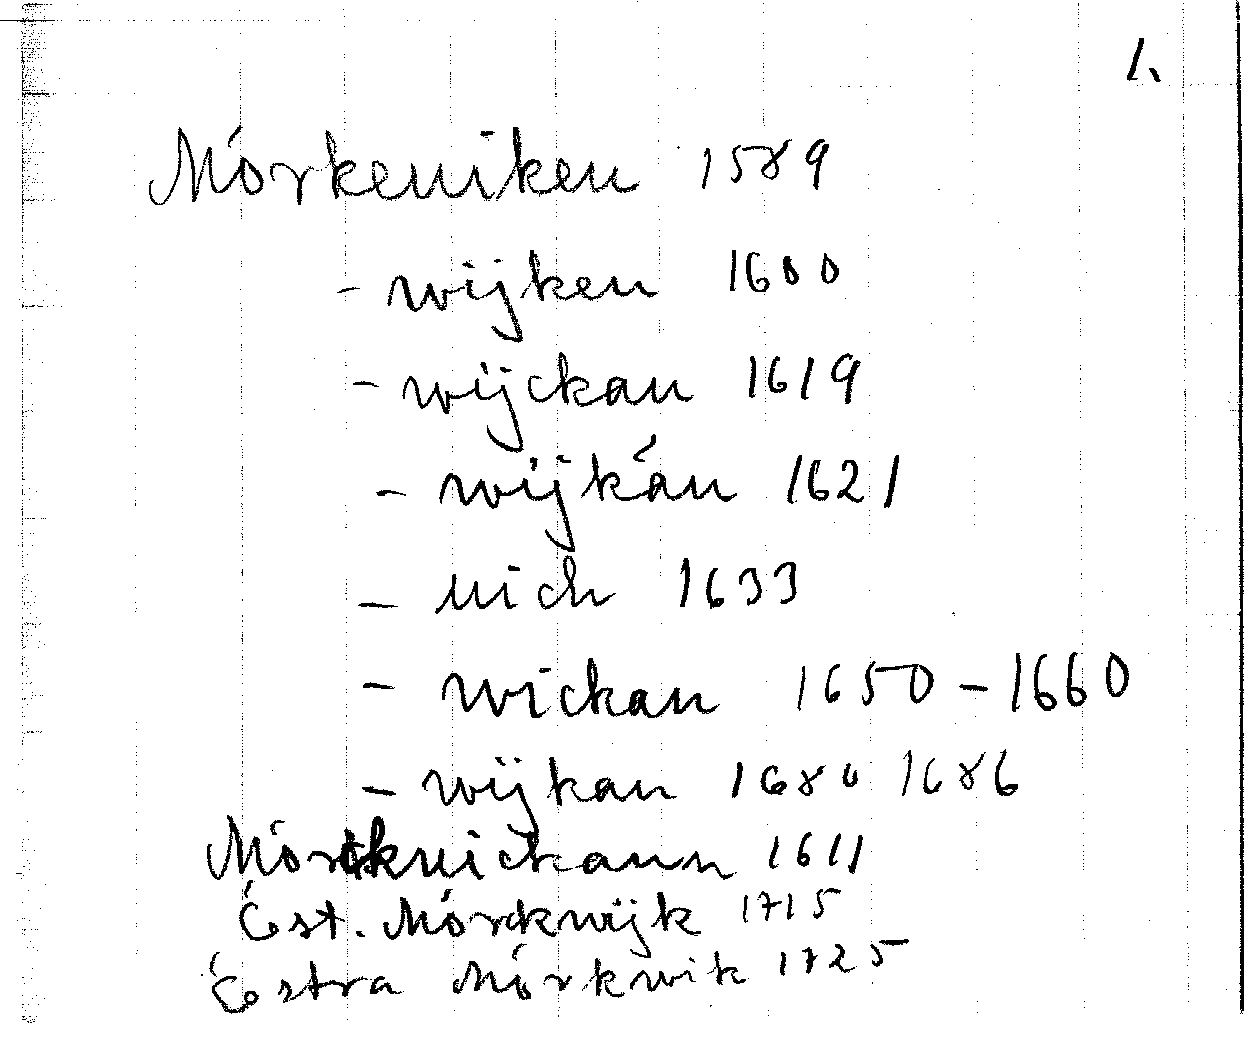 1.
Mórkeuiken 1589
- wijken 1600
- wijckan 1619
- wijkán 1621
- uich 1633
- wickan 1650-1660
- wijkan 1680 1686
Mórckuickann 1611
Óst. Mórckwijk 1715
Óstra Mórkwik 1725